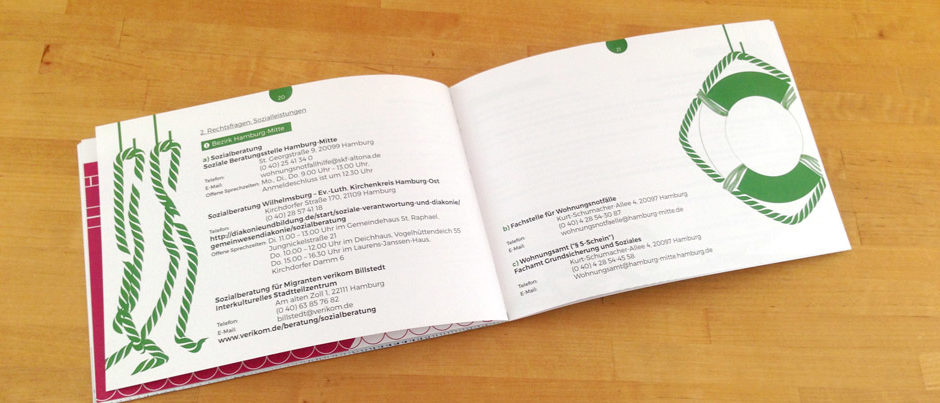 20
2. Rechtsfragen: Sozialleistungen
Bezirk Hamburg-Mitte
a) Sozialberatung
Soziale Beratungsstelle Hamburg-Mitte
St. Georgstraße 9, 20099 Hamburg
Telefon: (0 40) 25 41 34 0
E-Mail: wohnungsnotfallhilfe@skf-altona.de
Offene Sprechzeiten: Mo., Di., Do. 9.00 Uhr - 13.00 Uhr,
Anmeldeschluss ist um 12.30 Uhr
Sozialberatung Wilhelmsburg – Ev.-Luth. Kirchenkreis Hamburg-Ost
Kirchdorfer Straße 170, 21109 Hamburg
Telefon: (0 40) 28 57 41 18
http://diakonieundbildung.de/start/soziale-verantwortung-und-diakonie/
gemeinwesendiakonie/sozialberatung
Offene Sprechzeiten: Di. 11.00 - 13.00 Uhr im Gemeindehaus St. Raphael,
Jungnickelstraße 21
Do. 10.00 - 12.00 Uhr im Deichhaus, Vogelhüttendeich 55
Do. 15.00 - 16.30 Uhr im Laurens-Janssen-Haus,
Kirchdorfer Damm 6
Sozialberatung für Migranten verikom Billstedt
Interkulturelles Stadtteilzentrum
Am alten Zoll 1, 22111 Hamburg
Telefon: (0 40) 63 85 76 82
E-Mail: billstedt@verikom.de
www.verikom.de/beratung/sozialberatung
21
b) Fachstelle für Wohnungsnotfälle
Kurt-Schumacher-Allee 4, 20097 Hamburg
Telefon: (0 40) 4 28 54-50 87
E-Mail: wohnungsnotfaelle@hamburg-mitte.de
c) Wohnungsamt ("§ 5-Schein")
Fachamt Grundsicherung und Soziales
Kurt-Schumacher-Allee 4, 20097 Hamburg
Telefon: (0 40) 4 28 54-45 58
E-Mail: Wohnungsamt@hamburg-mitte.hamburg.de